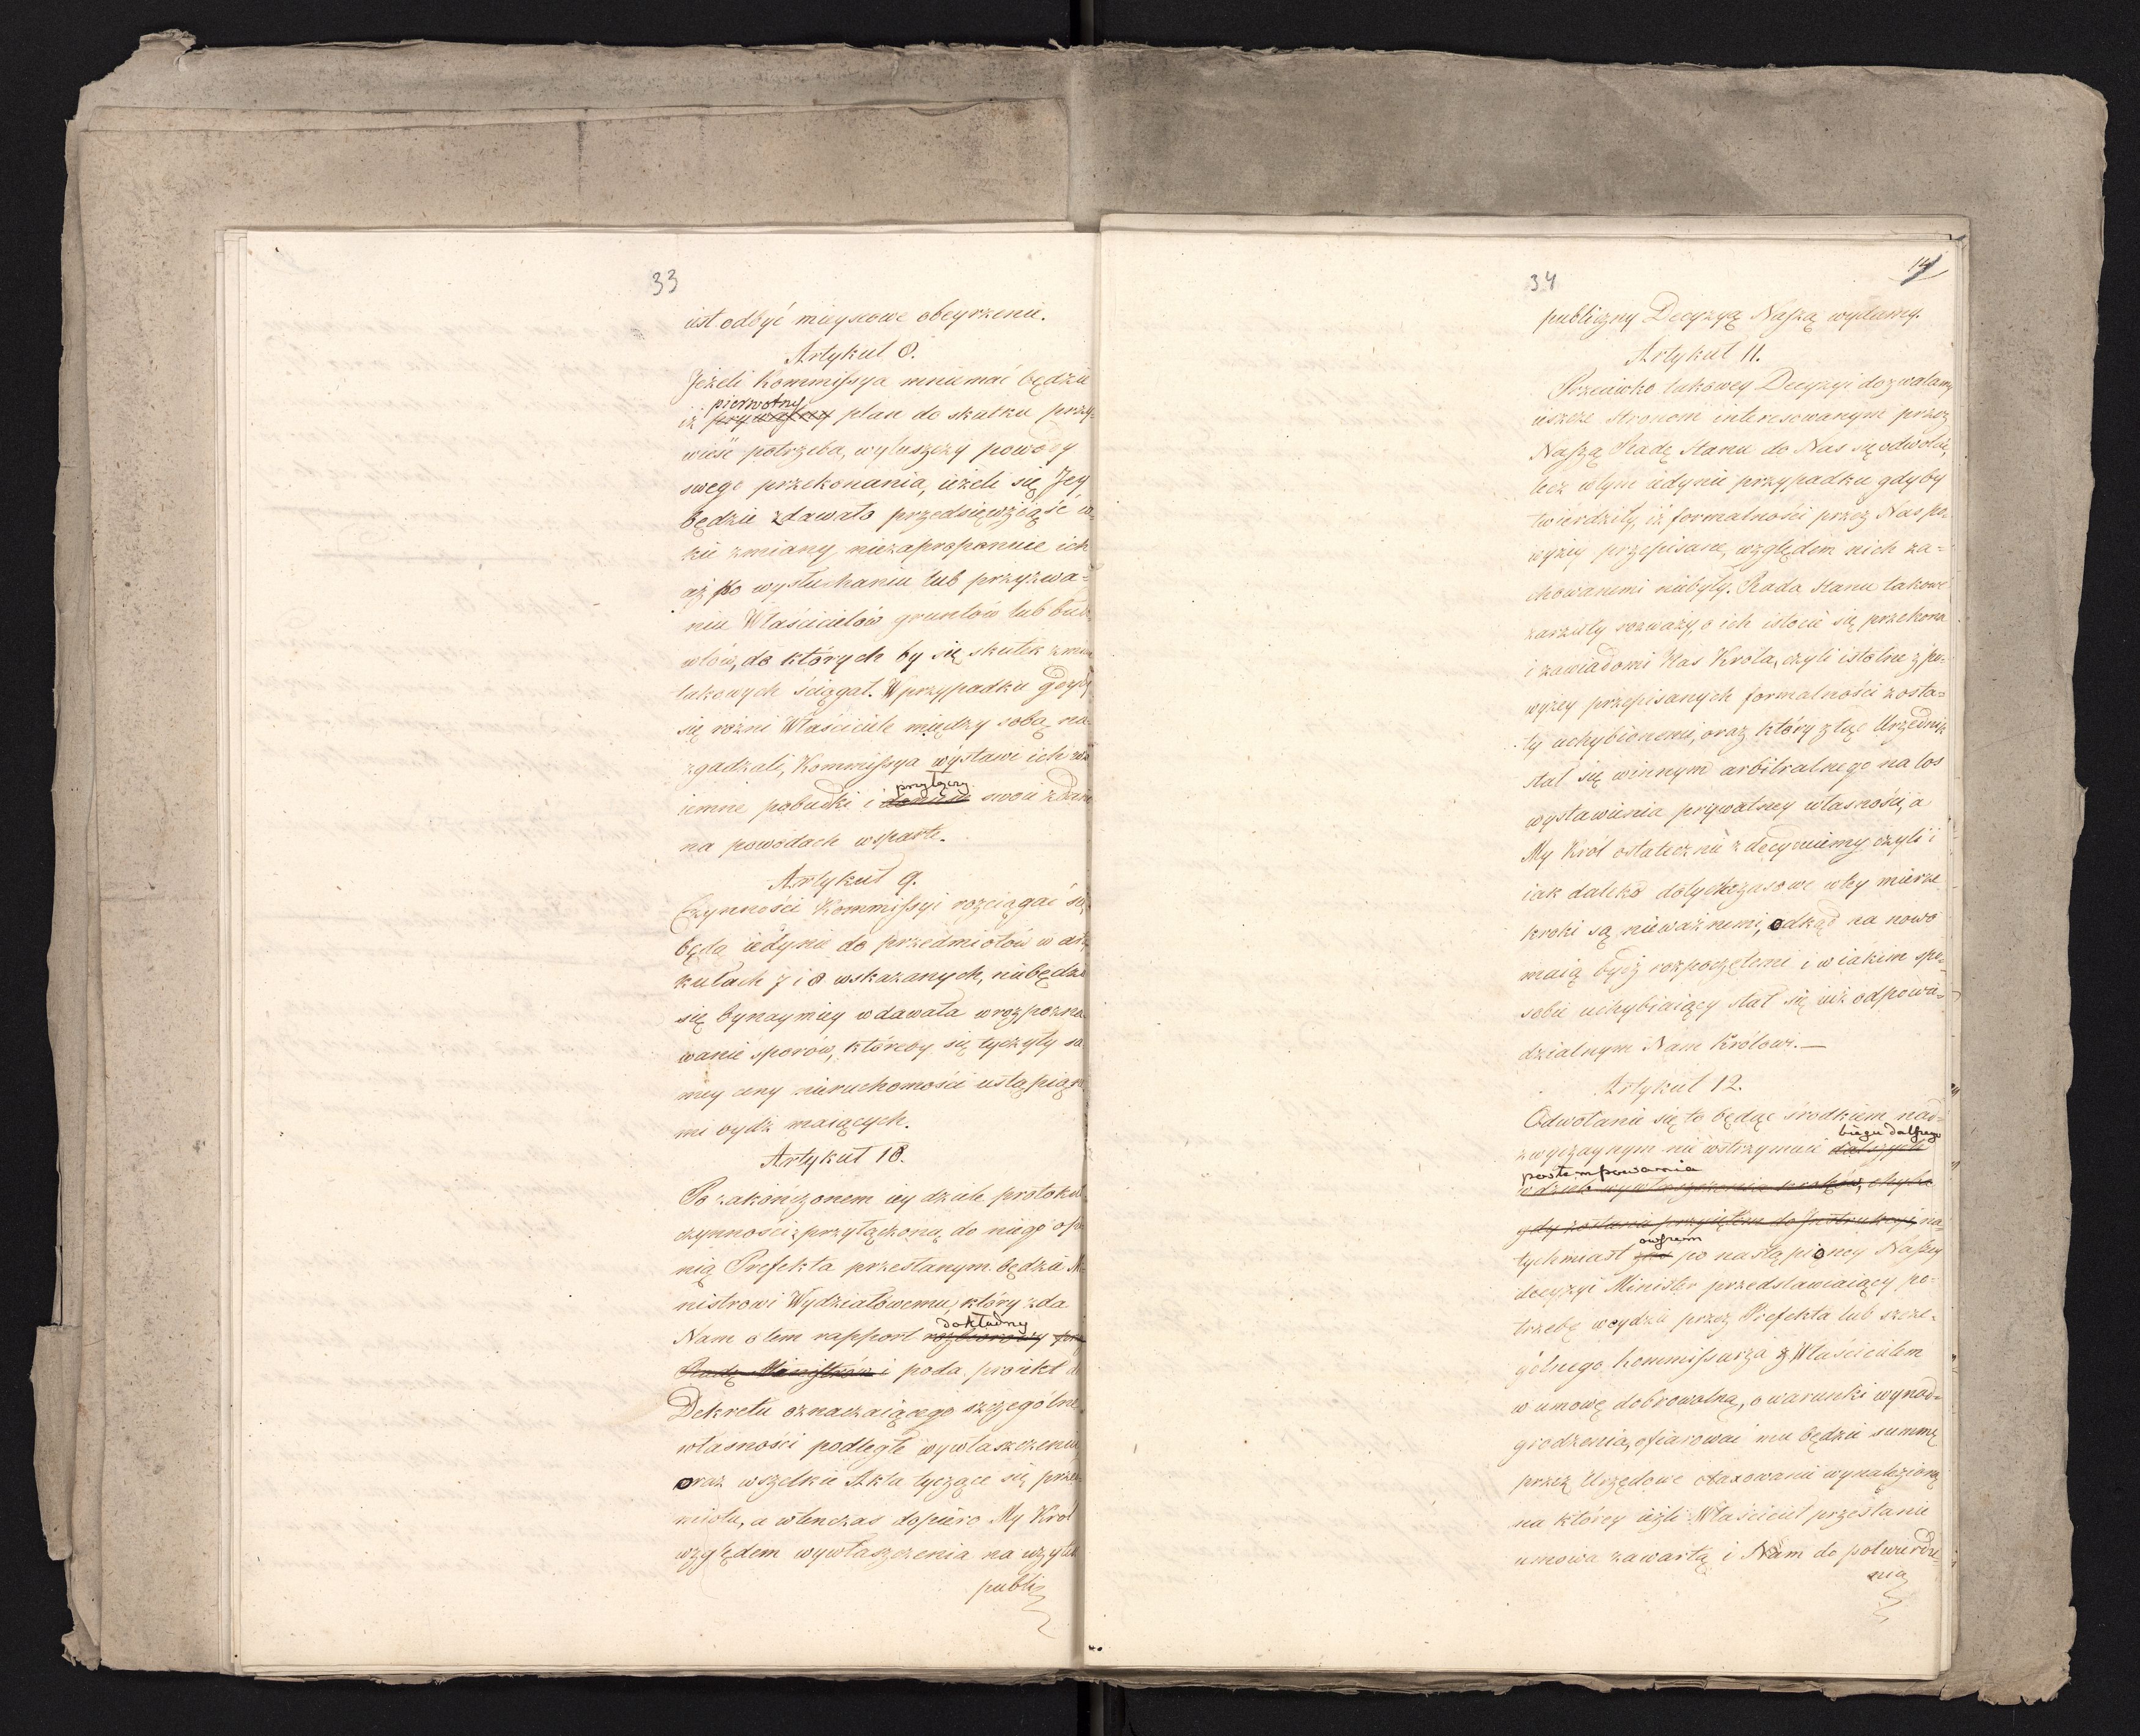 33
iest odbyć mieyscowe obeyrzenie.
Artykuł 8.
Jeżeli Kommissya mniemać będzie
pierwotny
iż prywatny plan do skutku przy-
wieść potrzeba, wyłuszczy powody
swego przekonania, ieżeli się Jey
będzie zdawało przedsięwziąść ia-
kie zmiany, niezaproponuie ich
aż po wysłuchaniu lub przyzwa-
niu Właścicielów gruntów lub bud-
wlów, do których by się skutek zmian
takowych ściągał. W przypadku gdyby
się rożni Właściciele między sobą nie
zgadzali, Kommissya wystawi ich wza
przyłączy
iemne pobudki i swoie zdanie
na powodach wsparte.
Artykuł 9.
Czynności Kommissyi rozciągać się
będą iedynie do przedmiotów w arty
kułach 7 i 8 wskazanych, niebędzie
się bynaymiey wdawała w rozpozna
wanie sporów, któreby się tyczyły sa
mey ceny nieruchomości ustąpione
mi bydź maiących.
Artykuł 10.
Po zakończonem iey dziele protokuł
czynności z przyłączoną do niego opi
nią Prefekta przesłanym będzie Mi
nistrowi Wydziałowemu, który zda
dokładny
Nam o tem rapport rozbiorowy przez
Radę Ministrów i poda proiekt do
Dekretu oznaczaiącego szczególne
własności podległe wywłaszczeniu
oraz wszelkie Akta tyczące się przed
miotu, a wtenczas dopiero My Król
względem wywłaszczenia na użytek
publi
34
14
publiczny Decyzyą Naszą wydamy.
Artykuł 11.
Przeciwko takowey Decyzyi dozwalamy
ieszcze stronom interesowanym przez
Naszą Radę Stanu do Nas się odwołać,
lecz w tym iedynie przypadku gdyby
twierdziły, iż formalności przez Nas po-
wyżey przepisane, względem nich za-
chowanemi niebyły. Rada Stanu takowe
zarzuty rozważy, o ich istocie się przekona
i zawiadomi Nas Króla, czyli istotne z po-
wyżey przepisanych formalności zosta-
ły uchybionemi, oraz który ztąd Urzędnik
stał się winnym arbitralnego na los
wystawienia prywatney własności, a
My Król ostatecznie zdecyduiemy czyli i
iak daleko dotychczasowe w tey mierze
kroki są nieważnemi, odkąd na nowo
maią bydź rozpoczętemi i w iakim spo-
sobie uchybiaiący stał się iuż odpowie-
dzialnym Nam Królowi.—
Artykuł 12.
Odwołanie się to będąc środkiem nad-
biegu dalszego
zwyczaynym nie wstrzymuie dalszych
postempowania
w dziele wywłaszczenia kroków, chyba
gdy zostanie przyiętem do Instrukcyi, na-
owszem
tychmiast po nastąpioney Naszey
decyzyi Minister przedstawiaiący po-
trzebę weydzie przez Prefekta lub szcze-
gólnego Kommissarza z Właścicielem
w umowę dobrowolną, o warunki wynad-
grodzenia, ofiarować mu będzie summę
przez Urzędowe otaxowanie wynalezioną
na którey ieżli Właściciel przestanie
umowa zawartą i Nam do potwierdze-
nia